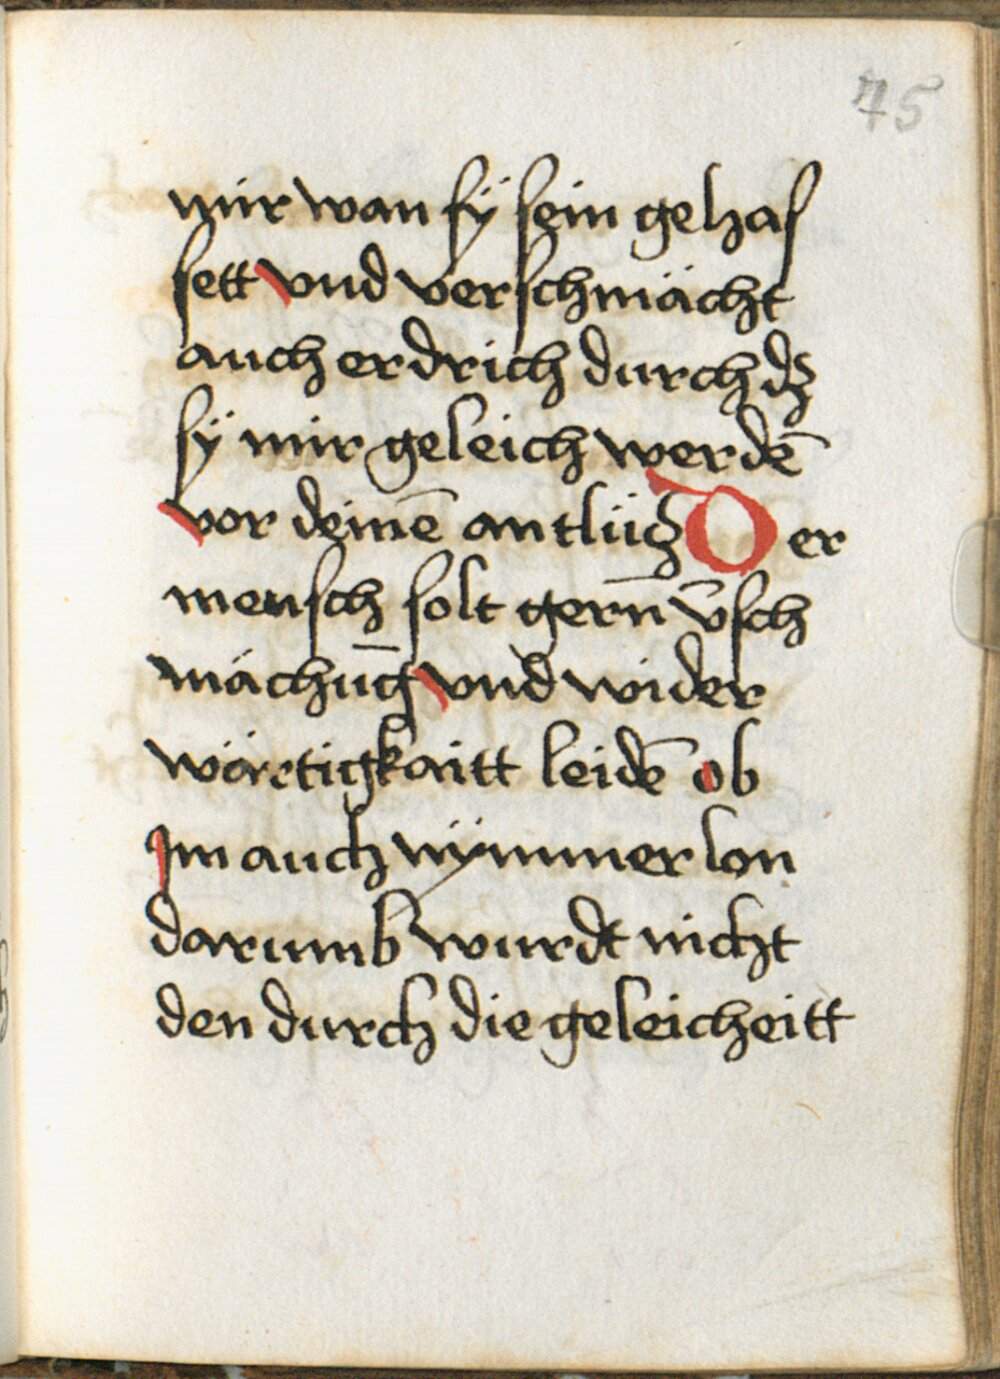 75
mir wan sÿ sein gehas
sett vnd verschmächt
auch erdrich durch dz
sÿ mir geleich werdē
vor deinē antlütz Der
mensch solt gern̄ v̄sch
mächūg vnd wider
wärtigkaitt leidē ob
Im auch nÿmmer lon
darumb wurdt nicht
den durch die geleicheitt